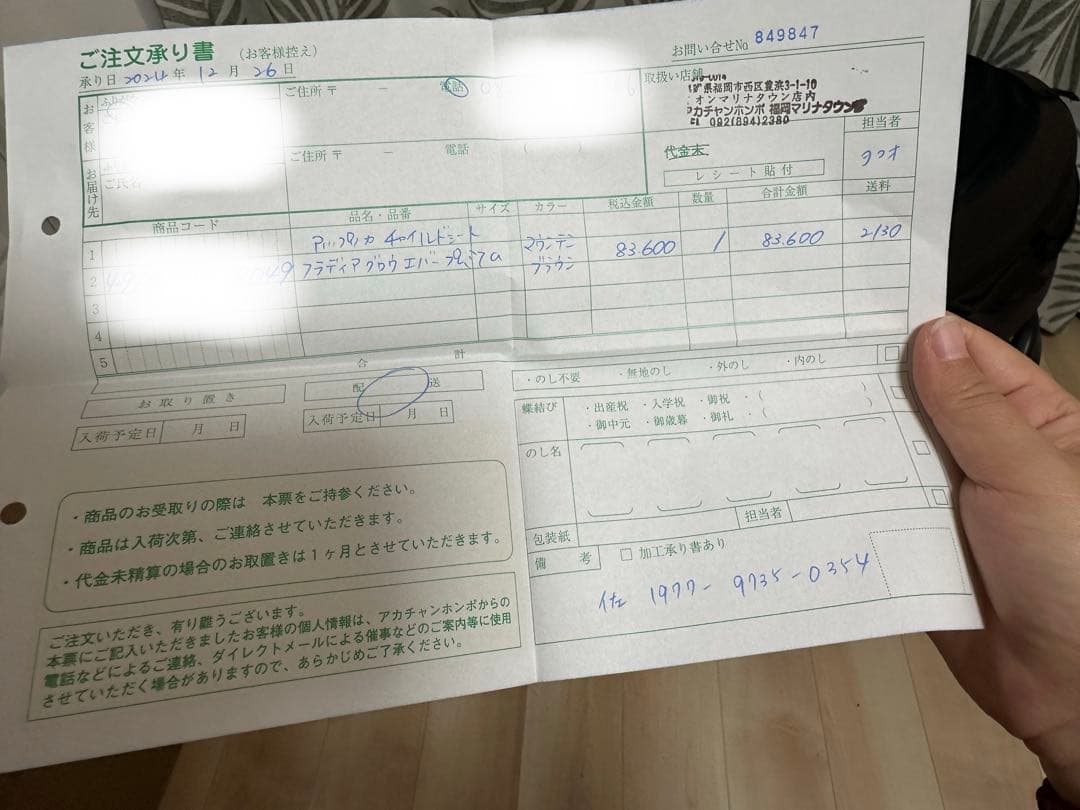 ご注文承り書 (お客様控え)
お問い合せNo 849847
承り日 2024年 12月 26日
お客様
ご住所 〒 －
電話
取扱い店舗
県福岡市西区豊浜3-1-10
オンマリナタウン店内
アカチャンホンポ 福岡マリナタウン
092(894)2380
担当者
代金未
レシート貼付
お届け先
ご氏名
ご住所 〒 － 電話 ( )
商品コード 品名・品番 サイズ カラー 税込金額 数量 合計金額 送料
1 アップリカ チャイルドシート マウンテン 83.600 1 83.600 2130
2 フラディアグロウ エバー プレミア ブラウン
3
4
5
合計
お取り置き
入荷予定日 月 日
配送
入荷予定日 月 日
・のし不要 ・無地のし ・外のし ・内のし
蝶結び ・出産祝 ・入学祝 ・御祝 ・( )
・御中元 ・御歳暮 ・御礼 ・( )
のし名
包装紙
担当者
備考 加工承り書あり
佐 1977-9735-0354
・商品のお受取りの際は 本票をご持参ください。
・商品は入荷次第、ご連絡させていただきます。
・代金未精算の場合のお取置きは1ヶ月とさせていただきます。
ご注文いただき、有り難うございます。
本票にご記入いただきましたお客様の個人情報は、アカチャンホンポからの
電話などによるご連絡、ダイレクトメールによる催事などのご案内等に使用
させていただく場合がありますので、あらかじめご了承ください。